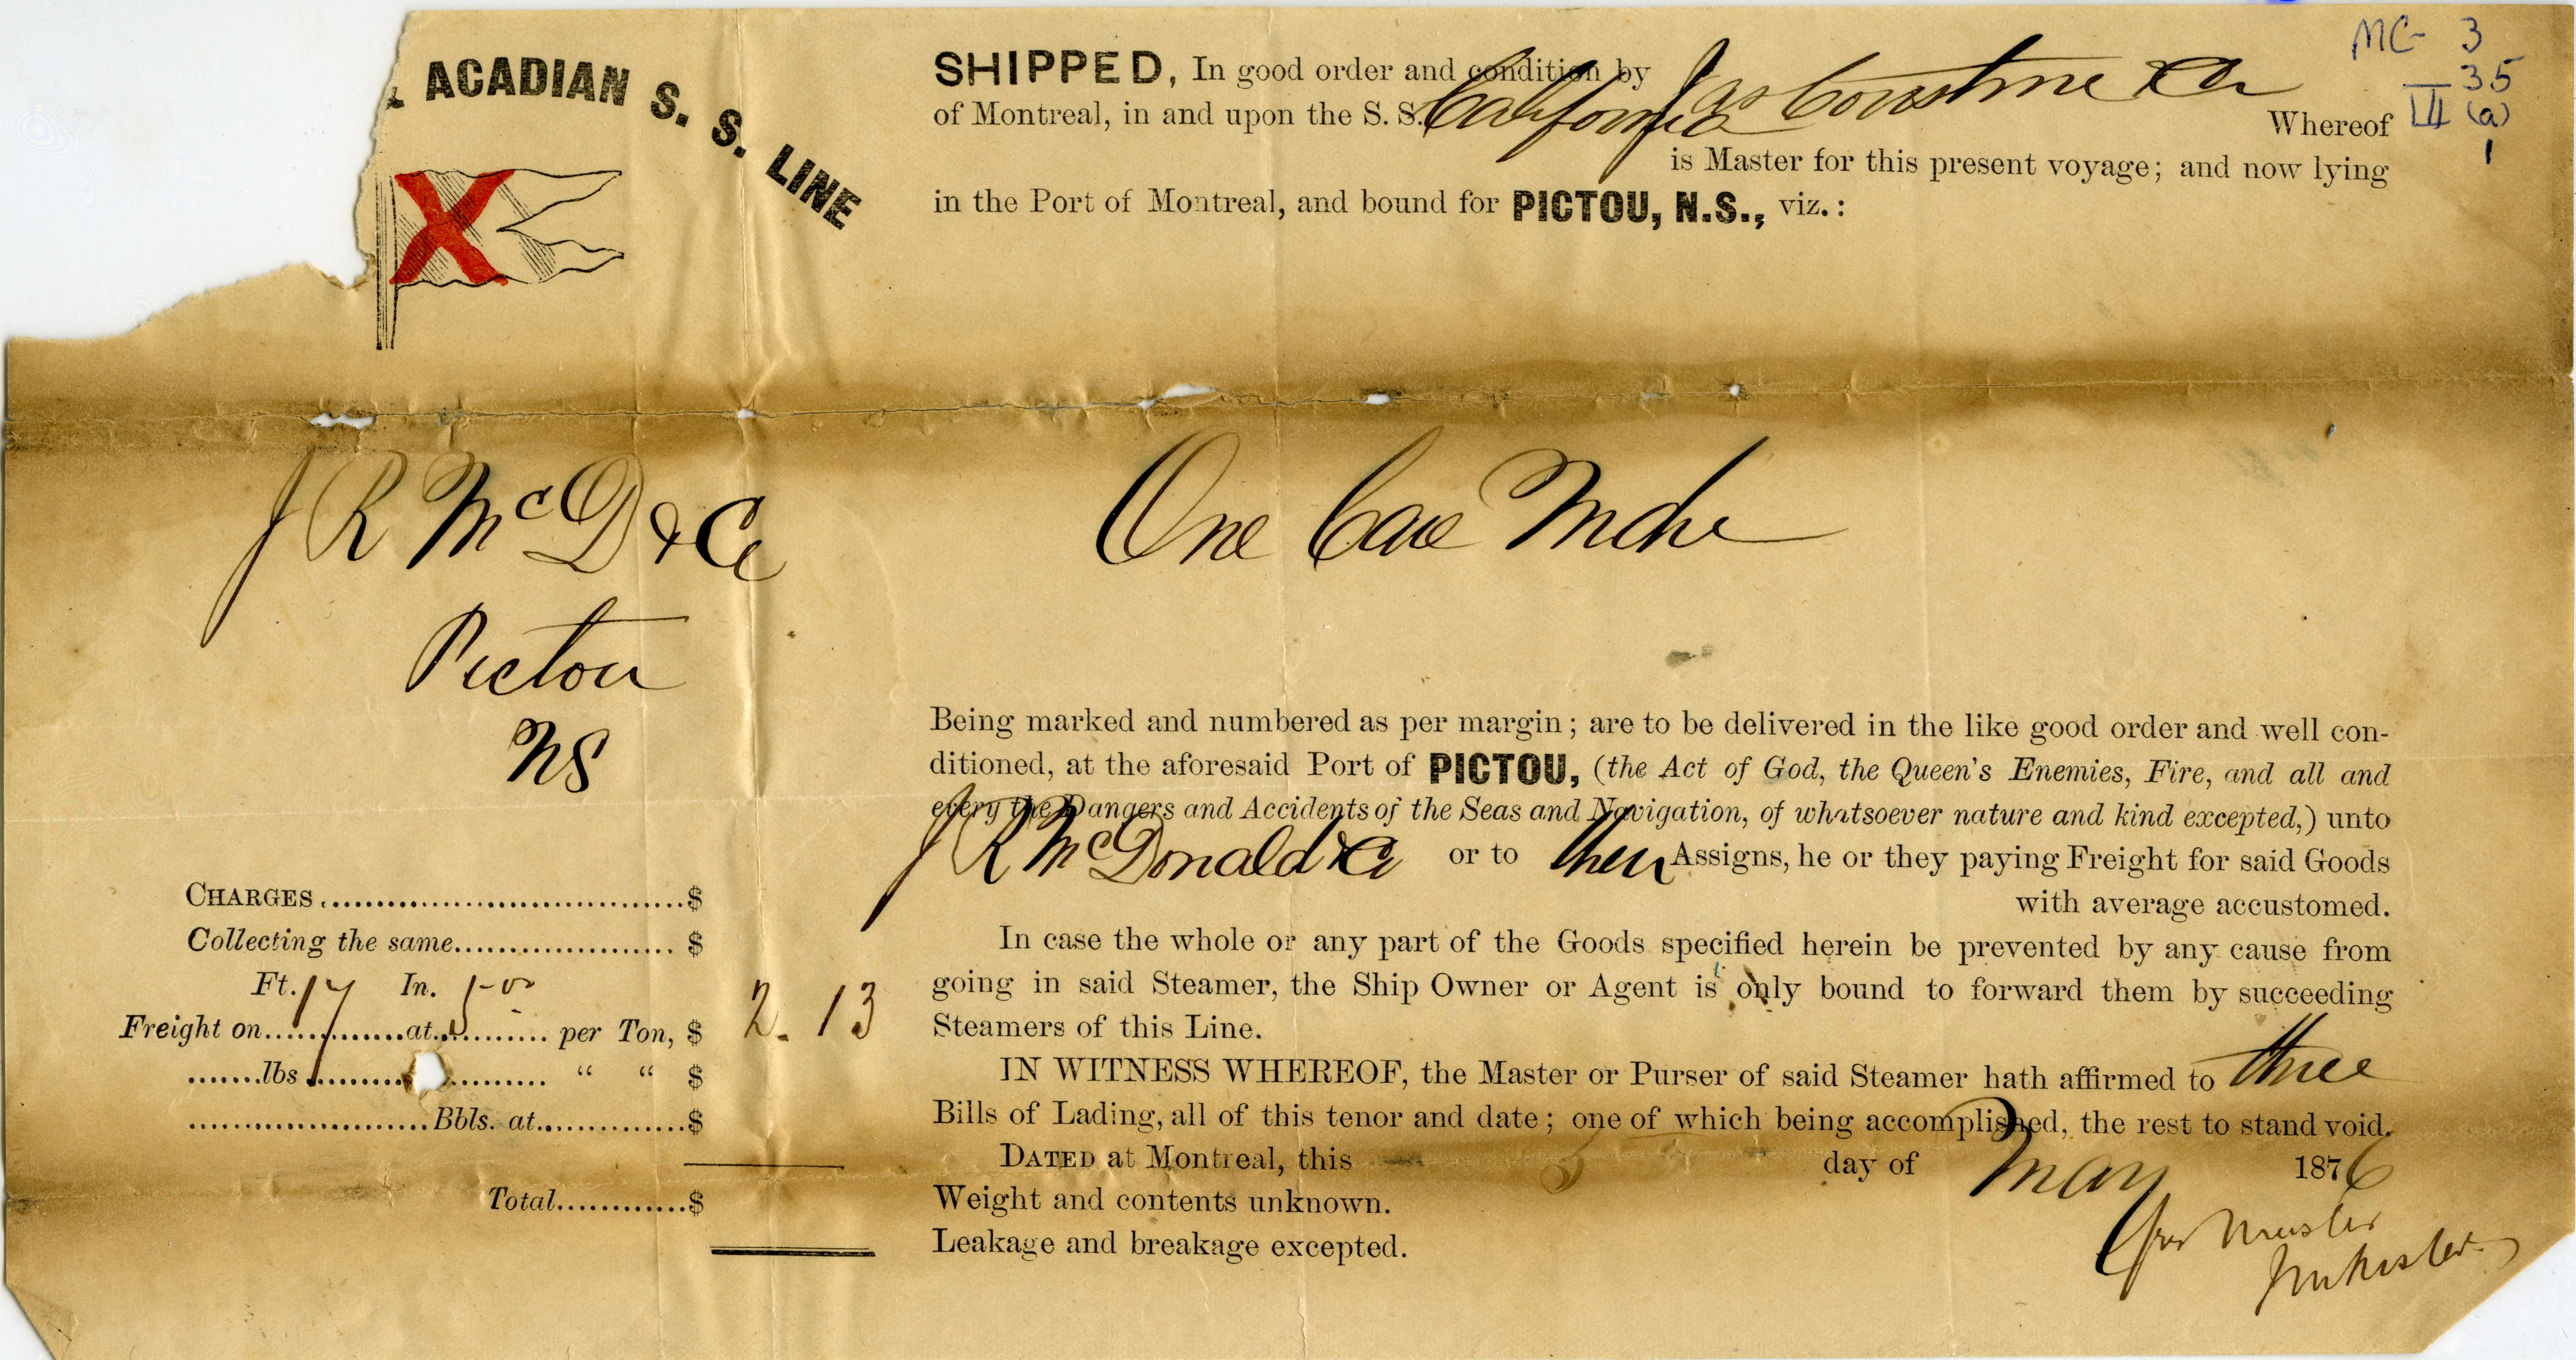 ACADIAN S. S. LINE
MC- 3
35
VII (a)
1
SHIPPED, In good order and condition by Jas
of Montreal, in and upon the S. S. California
Whereof
is Master for this present voyage; and now lying
in the Port of Montreal, and bound for PICTOU, N.S., viz.:
J R McD & Co
Pictou
NS
One Case Mdse
Being marked and numbered as per margin; are to be delivered in the like good order and well con-
ditioned, at the aforesaid Port of PICTOU, (the Act of God, the Queen's Enemies, Fire, and all and
every the Dangers and Accidents of the Seas and Navigation, of whatsoever nature and kind excepted,) unto
J R McDonald & Co or to their Assigns, he or they paying Freight for said Goods
with average accustomed.
In case the whole or any part of the Goods specified herein be prevented by any cause from
going in said Steamer, the Ship Owner or Agent is only bound to forward them by succeeding
Steamers of this Line.
IN WITNESS WHEREOF, the Master or Purser of said Steamer hath affirmed to three
Bills of Lading, all of this tenor and date; one of which being accomplished, the rest to stand void.
DATED at Montreal, this 5 day of May 1876
Weight and contents unknown.
Leakage and breakage excepted.
for Master
CHARGES $
Collecting the same $
Ft. 17 In. 5.00
Freight on at per Ton, $ 2.13
lbs " " $
Bbls. at $
Total $